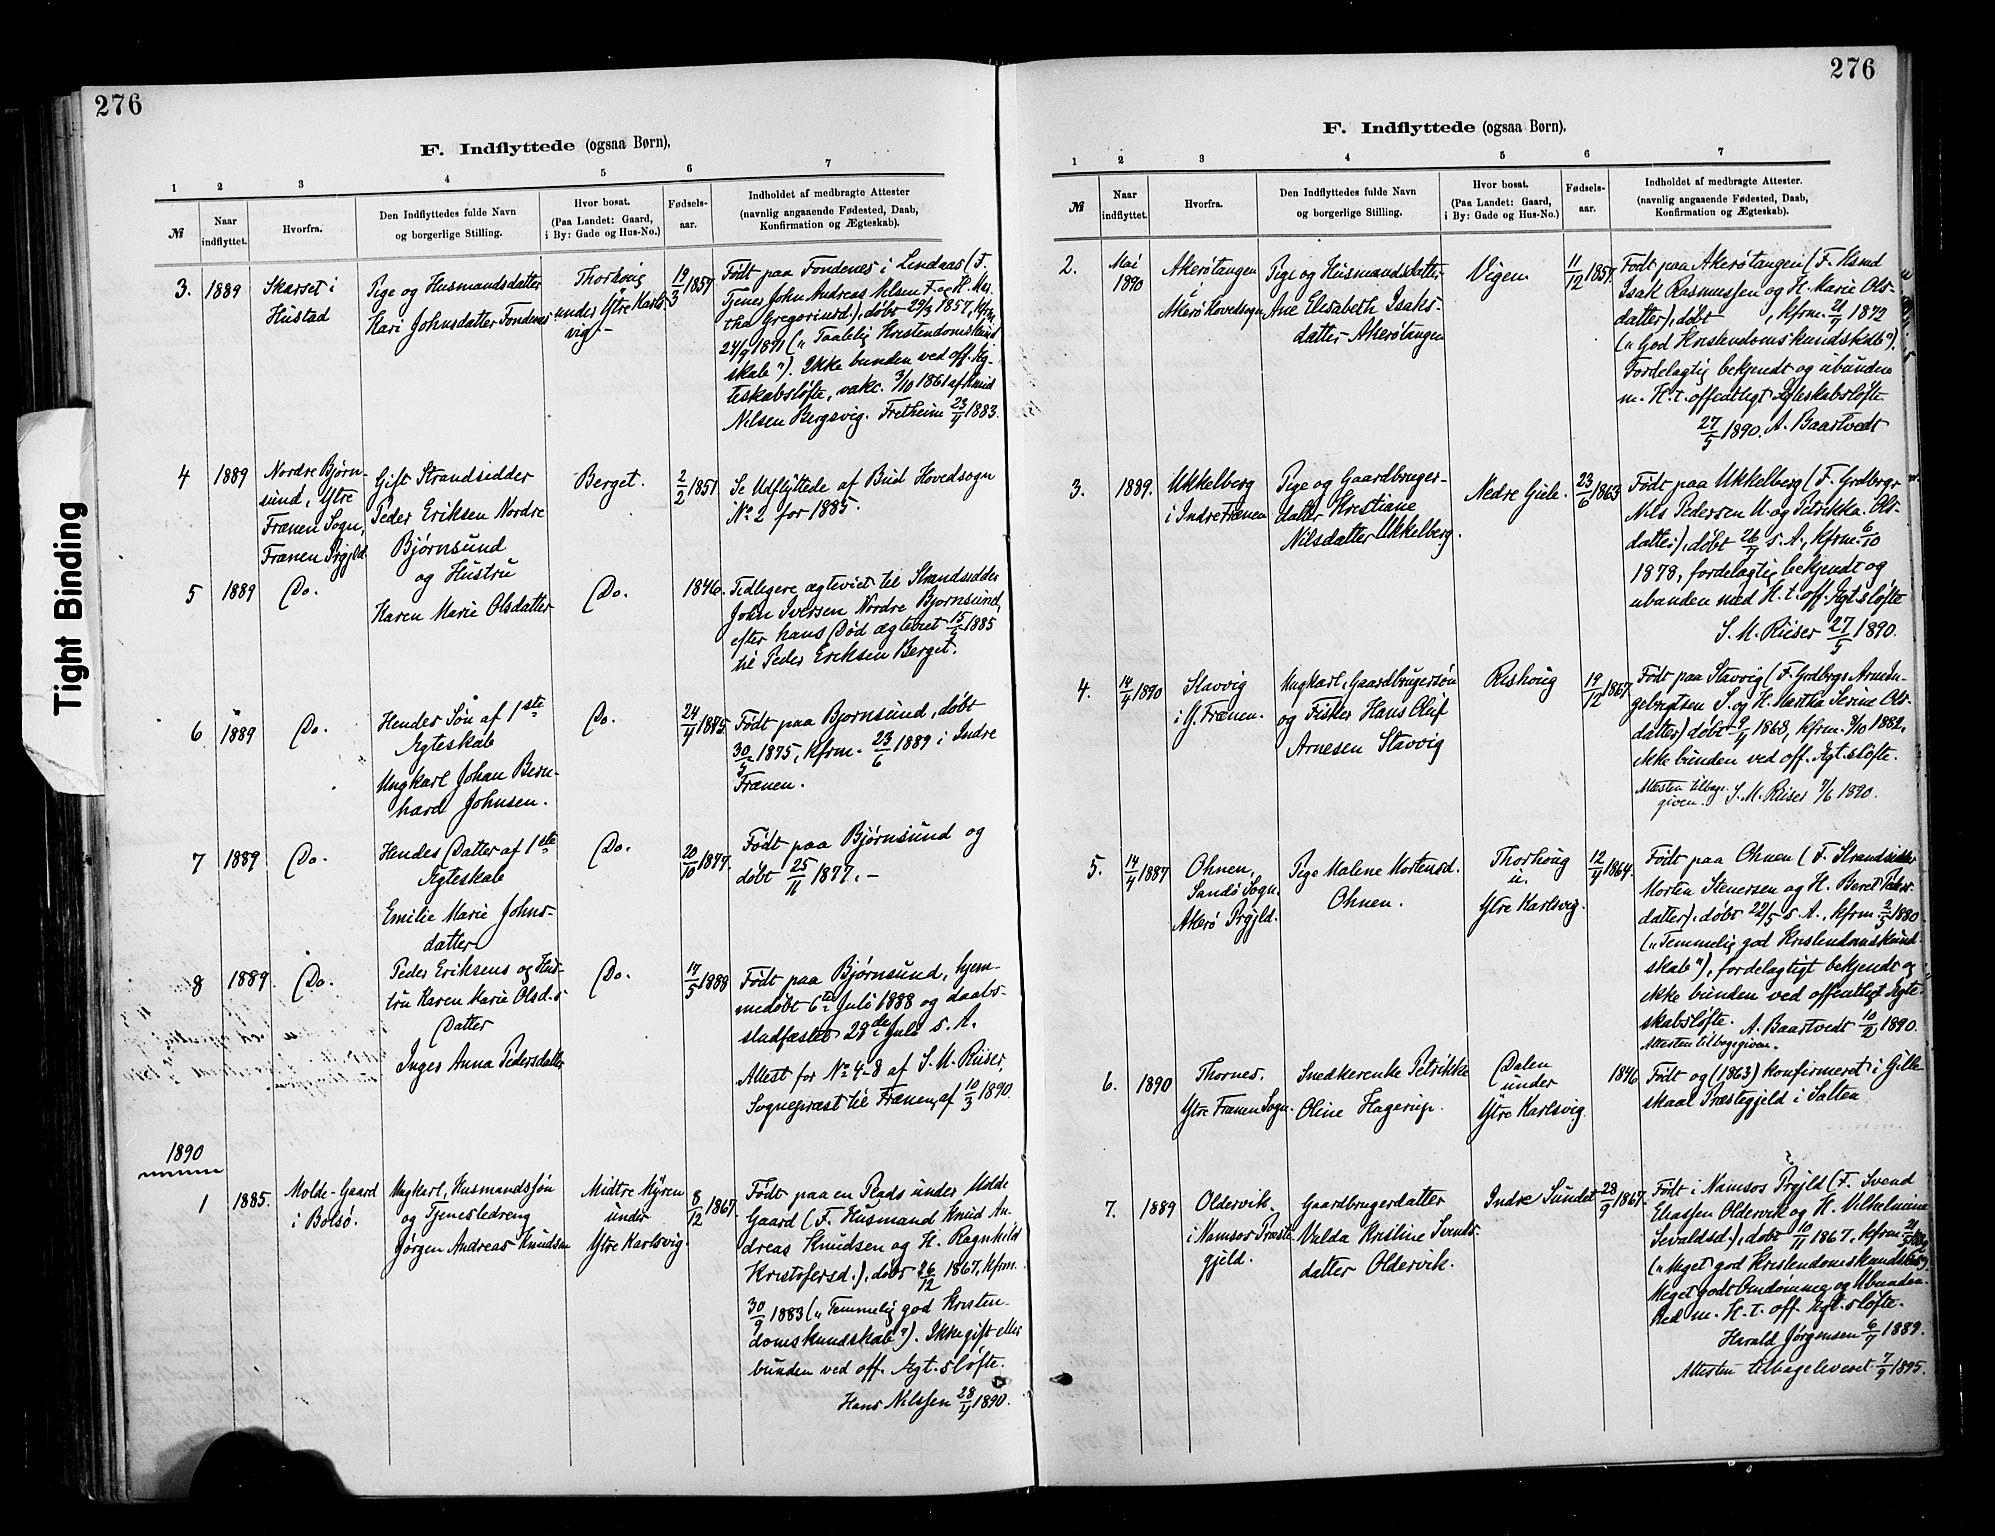 276
F. Indflyttede (ogsaa Børn),
1 2 3 4 5 6 7
№
Naar
indflyttet.
Hvorfra.
Den Indflyttedes fulde Navn
og borgerlige Stilling.
Hvor bosat.
(Paa Landet: Gaard,
i By: Gade og Hus-No.)
Fødsels-
aar.
Indholdet af medbragte Attester
(navnlig angaaende Fødested, Daab,
Konfirmation og Ægteskab).
3.
1889
Skarset i
Hustad
Pige og Husmandsdatter
Kari Johnsdatter Fondenes
Thorhoug
under Ytre Karls-
vig
19/3 1857
Født paa Fondenes i Lindeas (F.
Tjener John Andreas Nilsen F. og H. Mar-
tha Gregoriusd.), døbt 29/3 1857, kfrm.
24/9 1871 („Taalelig Kristendomskund-
skab"). Ikke bunden ved off. Æg-
teskabsløfte, vakc. 3/10 1861 af Knud
Nilsen Bergsvig. Fretheim 23/4 1883.
4
1889
Nordre Bjørn-
sund, Ytre
Frænen Sogn,
Frænen Prgjld.
Gift Strandsidder
Peder Eriksen Nordre
Bjørnsund
og Hustru
Berget.
2/2 1851
Se Udflyttede af Bud Hovedsogn
No 2 for 1885.
5
1889
Do.
Karen Marie Olsdatter
Do.
1846.
Tidligere ægteviet til Strandsidder
John Iversen Nordre Bjørnsund,
efter hans Død ægteviet 15/9 1885
til Peder Eriksen Berget.
6
1889
Do.
Hendes Søn af 1ste
Ægteskab
Ungkarl Johan Bern-
hard Johnsen.
Do.
24/4 1875.
Født paa Bjørnsund, døbt
30/5 1875, kfrm. 23/6 1889 i Indre
Frænen.
7
1889
Do.
Hendes Datter af 1ste
Ægteskab
Emilie Marie Johns-
datter
Do.
20/10 1877.
Født paa Bjørnsund og
døbt 25/11 1877. –
8
1889
Do.
Peder Eriksens og Hus-
tru Karen Marie Olsd.s
Datter
Inger Anna Pedersdatter
Do.
17/5 1888
Født paa Bjørnsund, hjem-
medøbt 6te Juli 1888 og daabs-
stadfæstet 29de Juli s. A.
Attest for No 4-8 af S. M. Riiser,
Sognepræst til Frænen, af 10/3 1890.
1890
1
1885.
Molde-Gaard
i Bolsø.
Ungkarl, Husmandssøn
og Tjenestedreng
Jørgen Andreas Knudsen
Midtre Myren
under
Ytre Karlsvig.
8/12 1867.
Født paa en Plads under Molde
Gaard (F. Husmand Knud An-
dreas Knudsen og H. Ragnhild
Kristofersd.), døbt 26/12 1867, kfrm.
30/9 1883 („Temmelig god Kristen-
domskundskab"). Ikke gift eller
bunden ved off. Ægt.sløfte.
Hans Nilssen 28/4 1890.
276
F. Indflyttede (ogsaa Børn).
1 2 3 4 5 6 7
№
Naar
indflyttet.
Hvorfra.
Den Indflyttedes fulde Navn
og borgerlige Stilling.
Hvor bosat.
(Paa Landet: Gaard,
i By: Gade og Hus-No.)
Fødsels-
aar.
Indholdet af medbragte Attester.
(navnlig angaaende Fødested, Daab,
Konfirmation og Ægteskab).
2.
Mai
1890
Akerøtangen
i
Akerø Hovedsogn
Pige og Husmandsdatter
Ane Elisabeth Isaks-
datter Akerøtangen
Vigen
11/12 1857.
Født paa Akerøtangen (F. Hsmd
Isak Rasmussen og H. Marie Ols-
datter), døbt , kfrm. 21/7 1872
(„God Kristendomskundskab").
Fordelagtig bekjendt og ubunden
m. H. t. offentligt Ægteskabsløfte
27/5 1890. A. Baartvedt
3.
1889.
Ukkelberg
i Indre Frænen
Pige og Gaardbruger-
datter Kristiane
Nilsdatter Ukkelberg.
Nedre Gule.
23/6 1863
Født paa Ukkelberg (F. Grdbrgr
Nils Pedersen U. og Petrikka Ols-
datter), døbt 26/7 s. A., kfrm. 6/10
1878, fordelagtig bekjendt og
ubunden med H. t. off. Ægt.sløfte
S. M. Riiser 27/5 1890.
4.
14/4 1890
Stavvig
i Y. Frænen.
Ungkarl, Gaardbrugersøn
og Fisker Hans Oluf
Arnesen Stavvig
Rishoug
19/12 1867.
Født paa Stavvig (F. Grdbrgr Arne In-
gebrigtsen S. og H. Martha Serine Ols-
datter) døbt 9/4 1868, kfrm. 8/10 1882,
ikke bunden ved off. Ægt.sløfte.
Attesten tilbage-
given. S. M. Riiser 7/6 1890.
5.
14/4 1887
Ohnen,
Sandø Sogn,
Akerø Prgjld.
Pige Malene Mortensd.
Ohnen.
Thorhoug
u.
Ytre Karlsvig.
12/4 1864.
Født paa Ohnen (F. Strandsidder
Morten Stenersen og H. Beret Peders-
datter), døbt 22/5 s. A., kfrm. 2/5 1880
(„Temmelig god Kristendomskund-
skab"), fordelagtigt bekjendt og
ikke bunden ved offentligt Ægte-
skabsløfte. A. Baartvedt 10/2 1890.
Attesten tilbagegiven.
6.
1890
Thornes.
Ytre Frænen Sogn.
Snedkerenke Petrikke
Oline Hagerup.
Dalen
under
Ytre Karlsvig.
1846
Født og (1863) konfirmeret i Gille-
skaal Præstegjeld i Salten
7.
1889
Oldervik
i Namsos Præste-
gjeld.
Gaardbrugerdatter
Valda Kristine Svends-
datter Oldervik.
Indre Sundet
28/9 1867.
Født i Namsos Prgjld (F. Svend
Eliassen Oldervik og H. Vilhelmine
Sevaldsd.), døbt 10/11 1867, kfrm.
(„Meget god Kristendomskundskab").
Meget godt Omdømme og Ubunden-
hed m. H. t. off. Ægt.sløfte.
Harald Jørgensen 6/7 1889.
Attesten tilbageleveret 7/9 1895.
Tight Binding